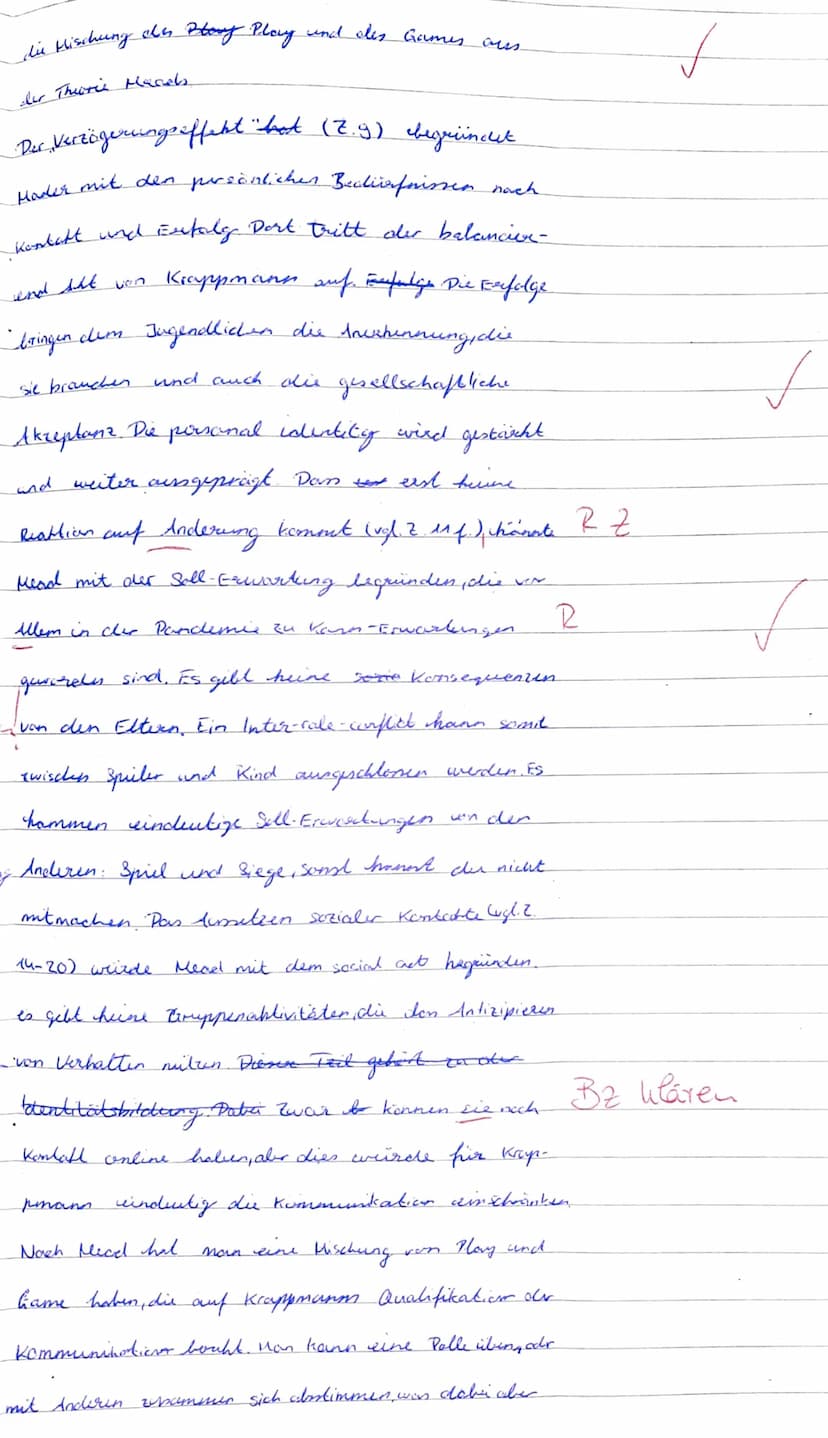 die Mischung des Play Play und des Games aus ✓
der Theorie Meads
Der „Verzögerungseffekt" hat (Z.9) begründet
Mader mit den persönlichen Bedürfnissen nach
Kontakt und Erfolg Dort tritt der balancier-
end Akt von Krappmann auf. Erfolge Die Erfolge
bringen dem Jugendlichen die Anerkennung, die
sie brauchen und auch die gesellschaftliche ✓
Akzeptanz. Die personal identity wird gestärkt
und weiter ausgeprägt Dass erst keine
Reaktion auf Änderung kommt (vgl. Z 11 f.), könnte R Z
Mead mit der Soll-Erwartung begründen, die vor
Allem in der Pandemie zu Kann-Erwartungen R ✓
geworden sind. Es gibt keine Konsequenzen
von den Eltern. Ein Inter-role-conflict kann somit
zwischen Spieler und Kind ausgeschlossen werden. Es
kommen eindeutige Soll-Erwartungen von den
Anderen: Spiel und Siege, sonst kannst du nicht
mitmachen. Das Aussetzen sozialer Kontakte (vgl. Z.
14-20) würde Mead mit dem social act begründen.
es gibt keine Gruppenaktivitäten, die den Antizipieren
von Verhalten nützen. Dieser Teil gehört zu der
Identitätsbildung. Dabei Zwar können sie noch Bz klären
Kontakt online haben, aber dies würde für Krap-
pmann eindeutig die Kommunikation einschränken.
Nach Mead hat man eine Mischung von Play und
Game haben, die auf Krappmanns Qualifikation der
Kommunikation beruht. Man kann eine Rolle üben, odr
mit Anderen zusammen sich abstimmen, was dabei aber